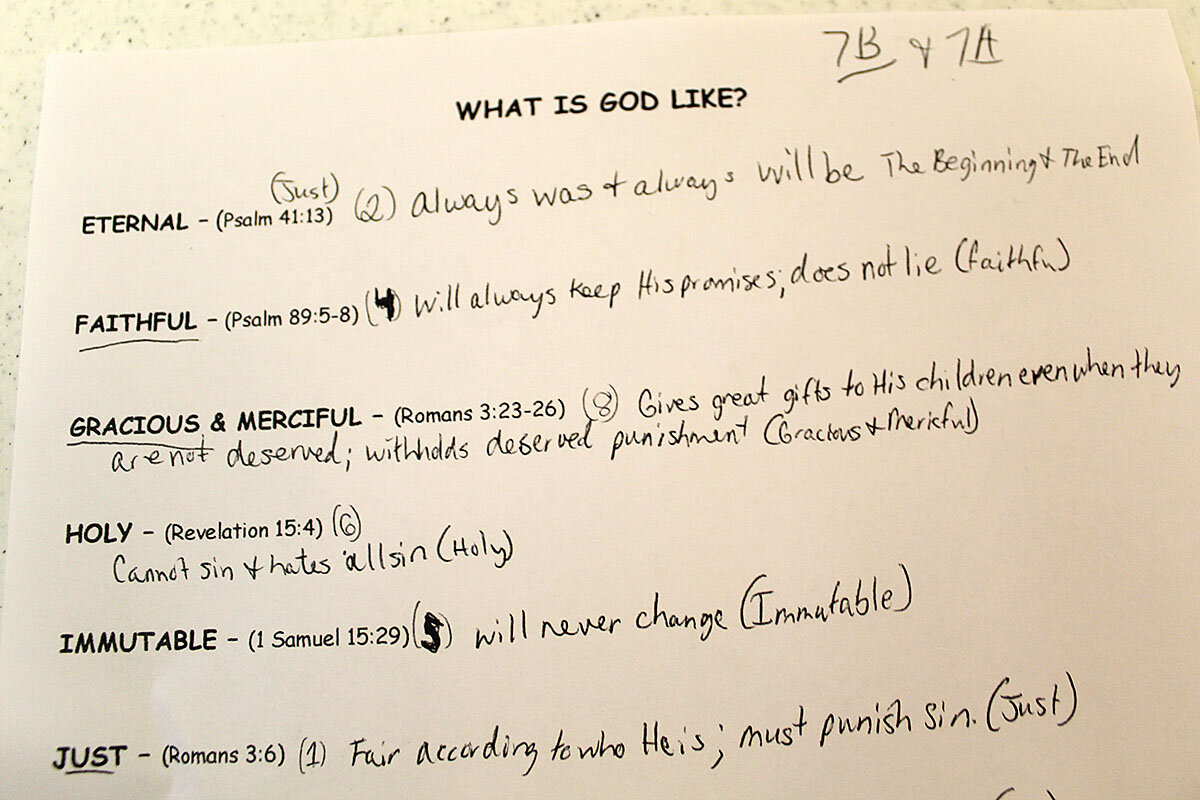 7B & 7A
WHAT IS GOD LIKE?
(Just)
ETERNAL – (Psalm 41:13) (2) Always was & always will be The Beginning & The End
FAITHFUL – (Psalm 89:5-8) (4) will always keep His promises; does not lie (faithful)
GRACIOUS & MERCIFUL – (Romans 3:23-26) (8) Gives great gifts to His children even when they
are not deserved; withholds deserved punishment (Gracious & Mericful)
HOLY – (Revelation 15:4) (6)
Cannot sin & hates all sin (Holy)
IMMUTABLE – (1 Samuel 15:29) (5) will never change (Immutable)
JUST – (Romans 3:6) (1) Fair according to who He is; must punish sin. (Just)